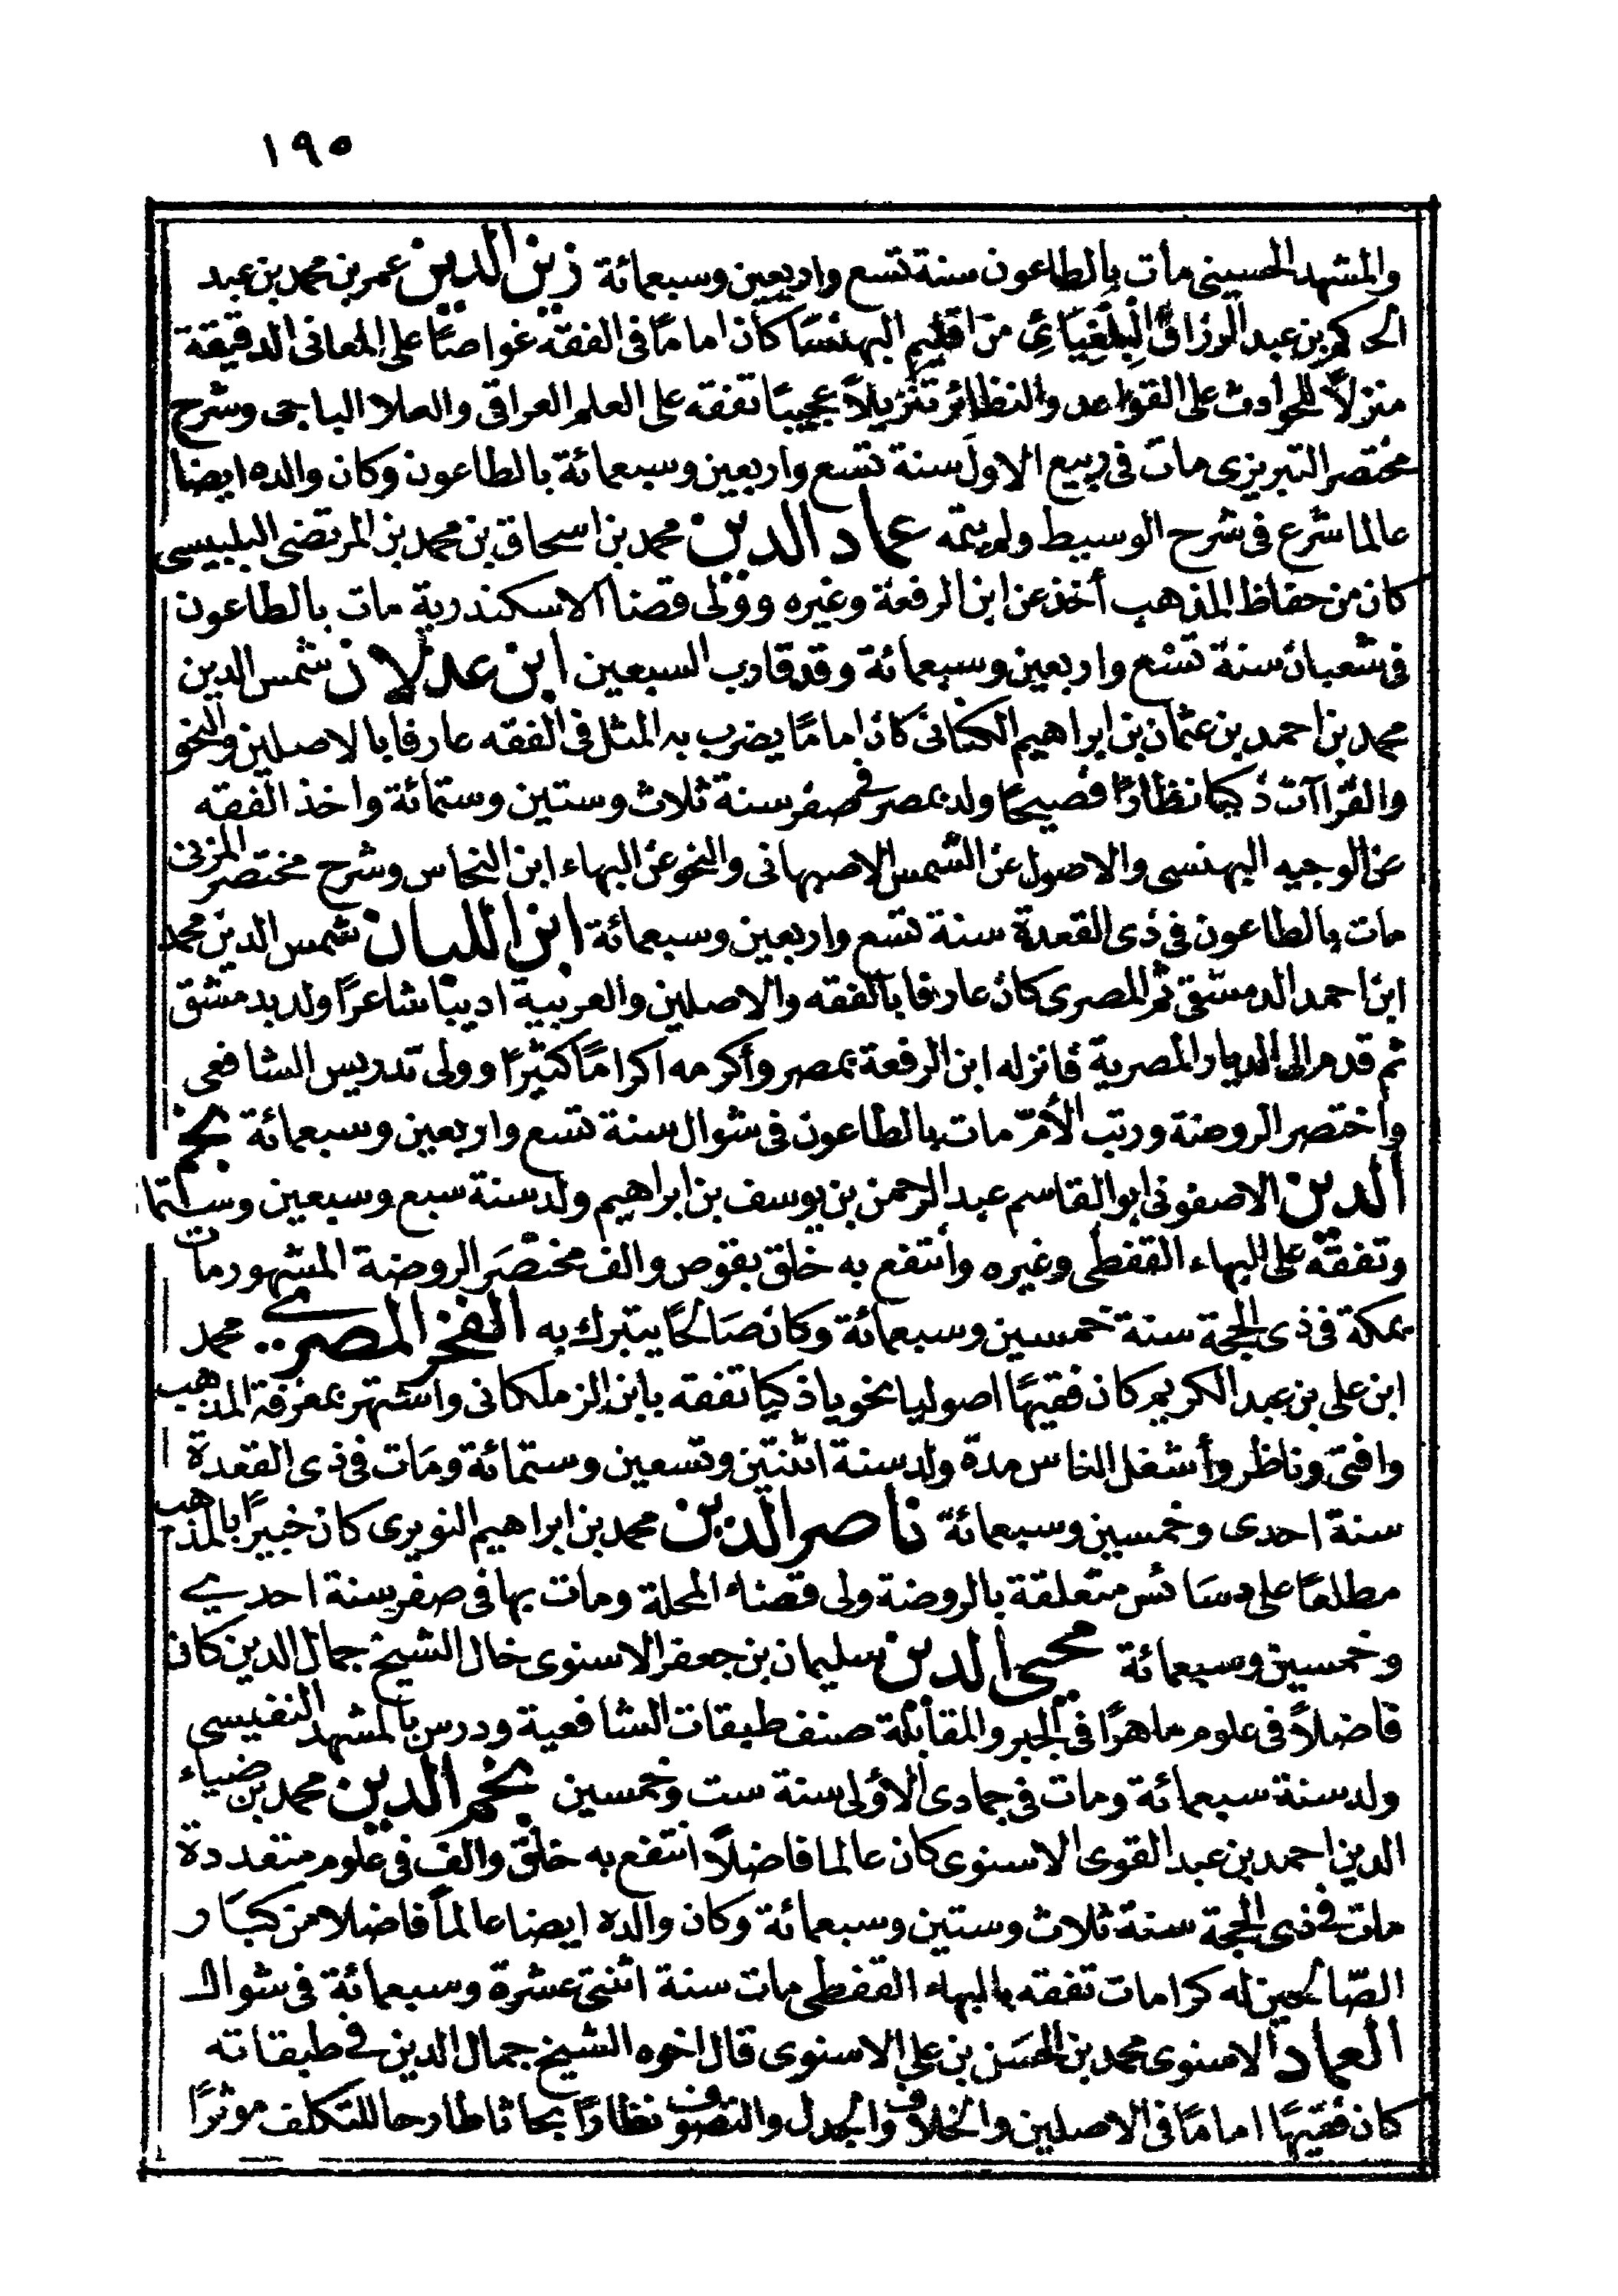 ١٩٥
والمشهد الحسينى مات بالطاعون سنة تسع واربعين وسبعمائة زين الدين عمر بن محمد بن عبد
الحكم بن عبد الرزاق البلفيائى من اقليم البهنسا كان اماما فى الفقه غواصًا على المعانى الدقيقة
منزلاً للحوادث على القواعد والنظائر تنزيلاً عجيبًا تفقه على العلم العراقى والعلا الباجى وشرح
مختصر التبريزى مات فى ربيع الاول سنة تسع واربعين وسبعمائة بالطاعون وكان والده ايضا
عالما شرع فى شرح الوسيط ولم يتمه عماد الدين محمد بن اسحاق بن محمد بن المرتضى البلبيسى
كان من حفاظ المذهب أخذ عن ابن الرفعة وغيره وولى قضا الاسكندرية مات بالطاعون
فى شعبان سنة تسع واربعين وسبعمائة وقد قارب السبعين ابن عدلان شمس الدين
محمد بن احمد بن عثمان بن ابراهيم الكنانى كان امامًا يضرب به المثل فى الفقه عارفا بالاصلين والنحو
والقراآت ذكيا نظارًا فصيحًا ولد بمصر فى صفر سنة ثلاث وستين وستمائة واخذ الفقه
عن الوجيه البهنسى والاصول عن الشمس الاصبهانى والنحو عن البهاء ابن النحاس وشرح مختصر المزنى
مات بالطاعون فى ذى القعدة سنة تسع واربعين وسبعمائة ابن اللبان شمس الدين محمد
ابن احمد الدمشقى ثم المصرى كان عارفا بالفقه والاصلين والعربية اديبًا شاعرًا ولد بدمشق
ثم قدم الى الديار المصرية فانزله ابن الرفعة بمصر وأكرمه اكرامًا كثيرًا وولى تدريس الشافعى
واختصر الروضة ورتب الأمّ مات بالطاعون فى شوال سنة تسع واربعين وسبعمائة نجم
الدين الاصفونى ابو القاسم عبد الرحمن بن يوسف بن ابراهيم ولد سنة سبع وسبعين وستما
وتفقه على البهاء القفطى وغيره وانتفع به خلق بقوص والف مختصر الروضة المشهور مات
بمكة فى ذى الحجة سنة خمسين وسبعمائة وكان صالحًا يتبرك به الفخر المصرى محمد
ابن على بن عبد الكريم كان فقيهًا اصوليا نحويا ذكيا تفقه بابن الزملكانى واشتهر بمعرفة المذهب
وافتى وناظر وأشغل الناس مدة ولد سنة اثنتين وتسعين وستمائة ومات فى ذى القعدة
سنة احدى وخمسين وسبعمائة ناصر الدين محمد بن ابراهيم النويرى كان خبيرًا بالمذهب
مطلعًا على دسائس متعلقة بالروضة ولى قضاء المحلة ومات بها فى صفر سنة احدى
وخمسين وسبعمائة محيى الدين سليمان بن جعفر الاسنوى خال الشيخ جمال الدين كان
فاضلاً فى علوم ماهرًا فى الجبر والمقابلة صنف طبقات الشافعية ودرس بالمشهد النفيسى
ولد سنة سبعمائة ومات فى جمادى الأولى سنة ست وخمسين نجم الدين محمد بن ضياء
الدين احمد بن عبد القوى الاسنوى كان عالما فاضلاً انتفع به خلق والف فى علوم متعددة
مات فى ذى الحجة سنة ثلاث وستين وسبعمائة وكان والده ايضا عالماً فاضلا من كبار
الصّالحين له كرامات تفقه بالبهاء القفطى مات سنة اثنتى عشرة وسبعمائة فى شوال
العماد الاسنوى محمد بن الحسن بن على الاسنوى قال اخوه الشيخ جمال الدين فى طبقاته
كان فقيهًا امامًا فى الاصلين والخلاف والجدل والتصوف نظارًا بحاثا طارحا للتكلف موثرًا